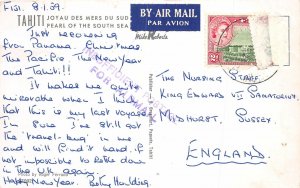 FIJI. 8.1.59.
TAHITI JOYAU DES MERS DU SUD
PEARL OF THE SOUTH SEAS
Just recovering
from Panama, Christmas
The Pacific, The New Year
and Tahiti!!
It makes me quite
miserable when I think
that this is my last voyage
I'm sure I've still got
the 'travel-bug' in me and
will find it hard, if
not impossible to settle down
in the U.K. again.
Happy New Year. Betty
BY AIR MAIL
PAR AVION
THE NURSING STAFF,
KING EDWARD VII SANATORIUM,
MIDHURST,
SUSSEX,
ENGLAND.